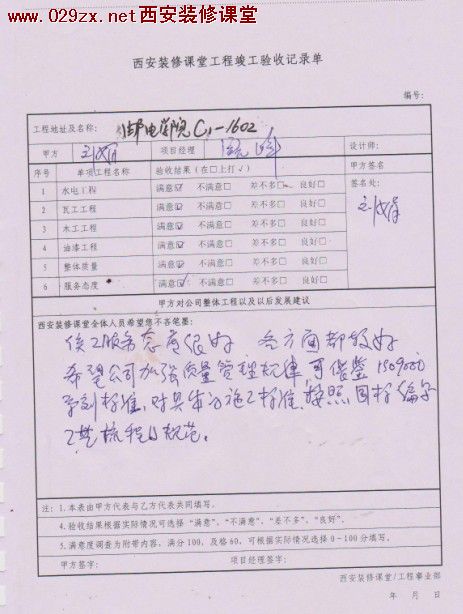 www.029zx.net西安装修课堂
西安装修课堂工程竣工验收记录单
编号:
工程地址及名称: 邮电学院C1-1602
甲方 项目经理 设计师:
序号 单项工程名称 验收结果（在□上打√） 甲方签名
1 水电工程 满意☑ 不满意□ 差不多□ 良好□ 签名处:
2 瓦工工程 满意☑ 不满意□ 差不多□ 良好□
3 木工工程 满意☑ 不满意□ 差不多□ 良好□
4 油漆工程 满意☑ 不满意□ 差不多□ 良好□
5 整体质量 满意☑ 不满意□ 差不多□ 良好□
6 服务态度 满意☑ 不满意□ 差不多□ 良好□
甲方对公司整体工程以及以后发展建议
西安装修课堂全体人员希望您不吝笔墨:
服务态度很好 各方面都较好
希望公司加强质量管理规律,可借鉴ISO9000
系列标准,对具体的施工标准,按照国标编写
工艺流程的规范。
注: 1.本表由甲方代表与乙方代表共同填写。
4.验收结果根据实际情况可选择“满意”、“不满意”、“差不多”、“良好”.
5.满意度调查为附带内容，满分100，及格60，可根据实际情况选择0-100分填写。
甲方签字: 项目经理签字:
西安装修课堂/工程事业部
年 月 日